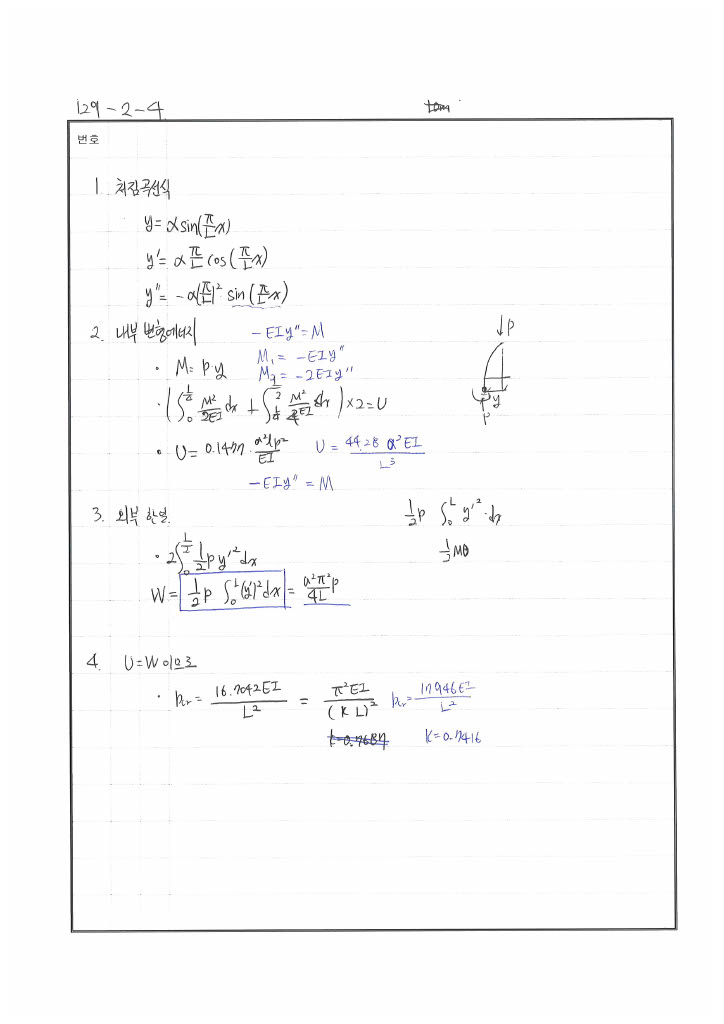 129-2-4
번호
1. 처짐곡선식
y = α sin(π/L x)
y' = α π/L cos(π/L x)
y'' = -α(π/L)² sin(π/L x)
2. 내부 변형에너지 -EIy'' = M
· M = P·y M₁ = -EIy''
M₂ = -2EIy''
↓P
y
P
· (∫₀^(L/4) M²/2EI dx + ∫_(L/4)^(L/2) M²/4EI dx) × 2 = U
· U = 0.1477 · a²lp²/EI U = 44.28 a²EI / L³
-EIy'' = M
3. 외부 한일. ½P ∫₀^L y'²·dx
· 2∫₀^(L/2) ½ P y'² dx ½Mθ
W = ½P ∫₀^L (y')² dx = a²π²/4L P
4. U=W 이므로
· Pcr = 16.7042EI / L² = π²EI / (KL)² Pcr = 17.946EI / L²
K=0.7416